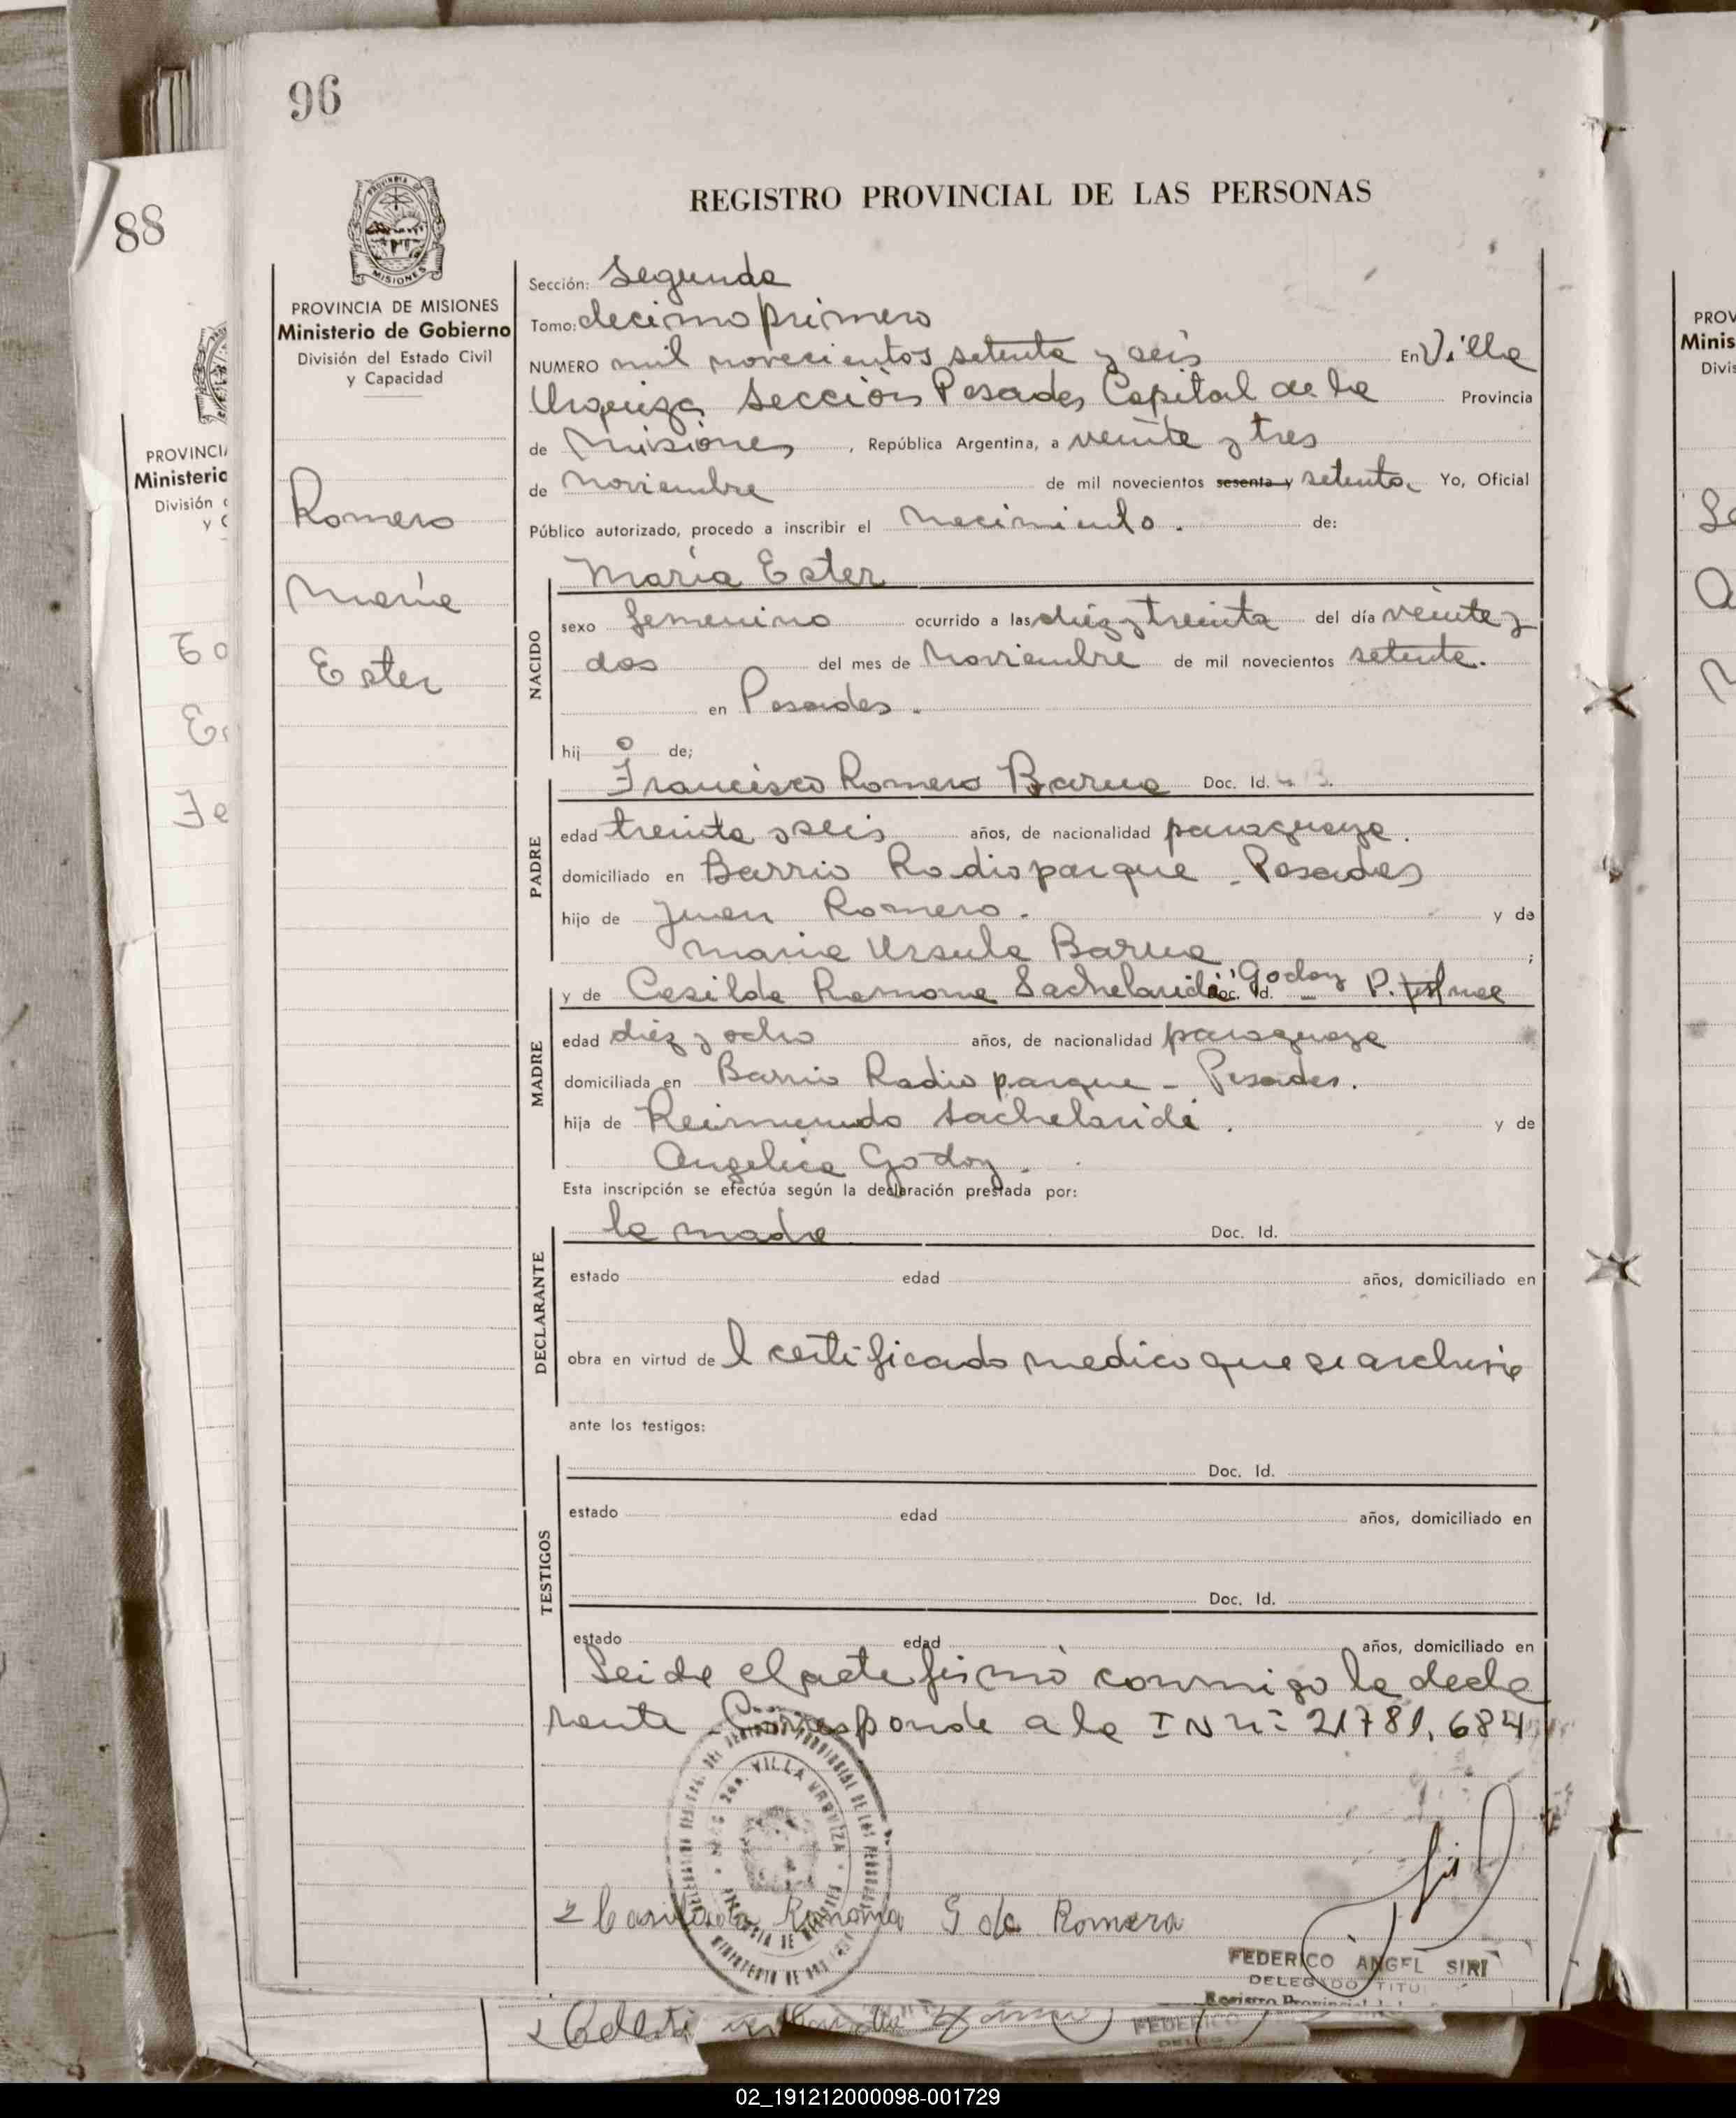 96
88
REGISTRO PROVINCIAL DE LAS PERSONAS
MISIONES
PROVINCIA DE MISIONES
Ministerio de Gobierno
División del Estado Civil
y Capacidad
Romero
María
Ester
Sección: Segunda
Tomo: decimo primero
NUMERO mil novecientos setenta y seis En Villa
Urquiza Sección Posadas Capital de la Provincia
de Misiones, República Argentina, a veinte y tres
de Noviembre de mil novecientos sesenta y setenta. Yo, Oficial
Público autorizado, procedo a inscribir el Nacimiento. de:
María Ester
NACIDO
sexo femenino ocurrido a las diez y treinta del día veinte y
dos del mes de Noviembre de mil novecientos setenta.
en Posadas.
hij o de;
Francisco Romero Barua Doc. Id.
PADRE
edad treinta y seis años, de nacionalidad paraguaya.
domiciliado en Barrio Radio parque - Posadas
hijo de Juan Romero. y de
Maria Ursula Barua ;
y de Casilda Ramona Sachelaridi Godoy Doc. Id. - P.
MADRE
edad diez y ocho años, de nacionalidad paraguaya
domiciliada en Barrio Radio parque - Posadas.
hija de Reimundo Sachelaridi. y de
Angelica Godoy.
Esta inscripción se efectúa según la declaración prestada por:
la madre Doc. Id.
DECLARANTE
estado edad años, domiciliado en
obra en virtud de l certificado medico que se archiva
ante los testigos:
Doc. Id.
TESTIGOS
estado edad años, domiciliado en
Doc. Id.
estado edad años, domiciliado en
Leida el acta firmó conmigo la decla
rante. Corresponde a la I N nº 21781.684
VILLA URQUIZA
Casilda Ramona G de Romero
FEDERICO ANGEL SIRI
DELEGADO TITU
Registro Provincial
FEDERICO
02_191212000098-001729